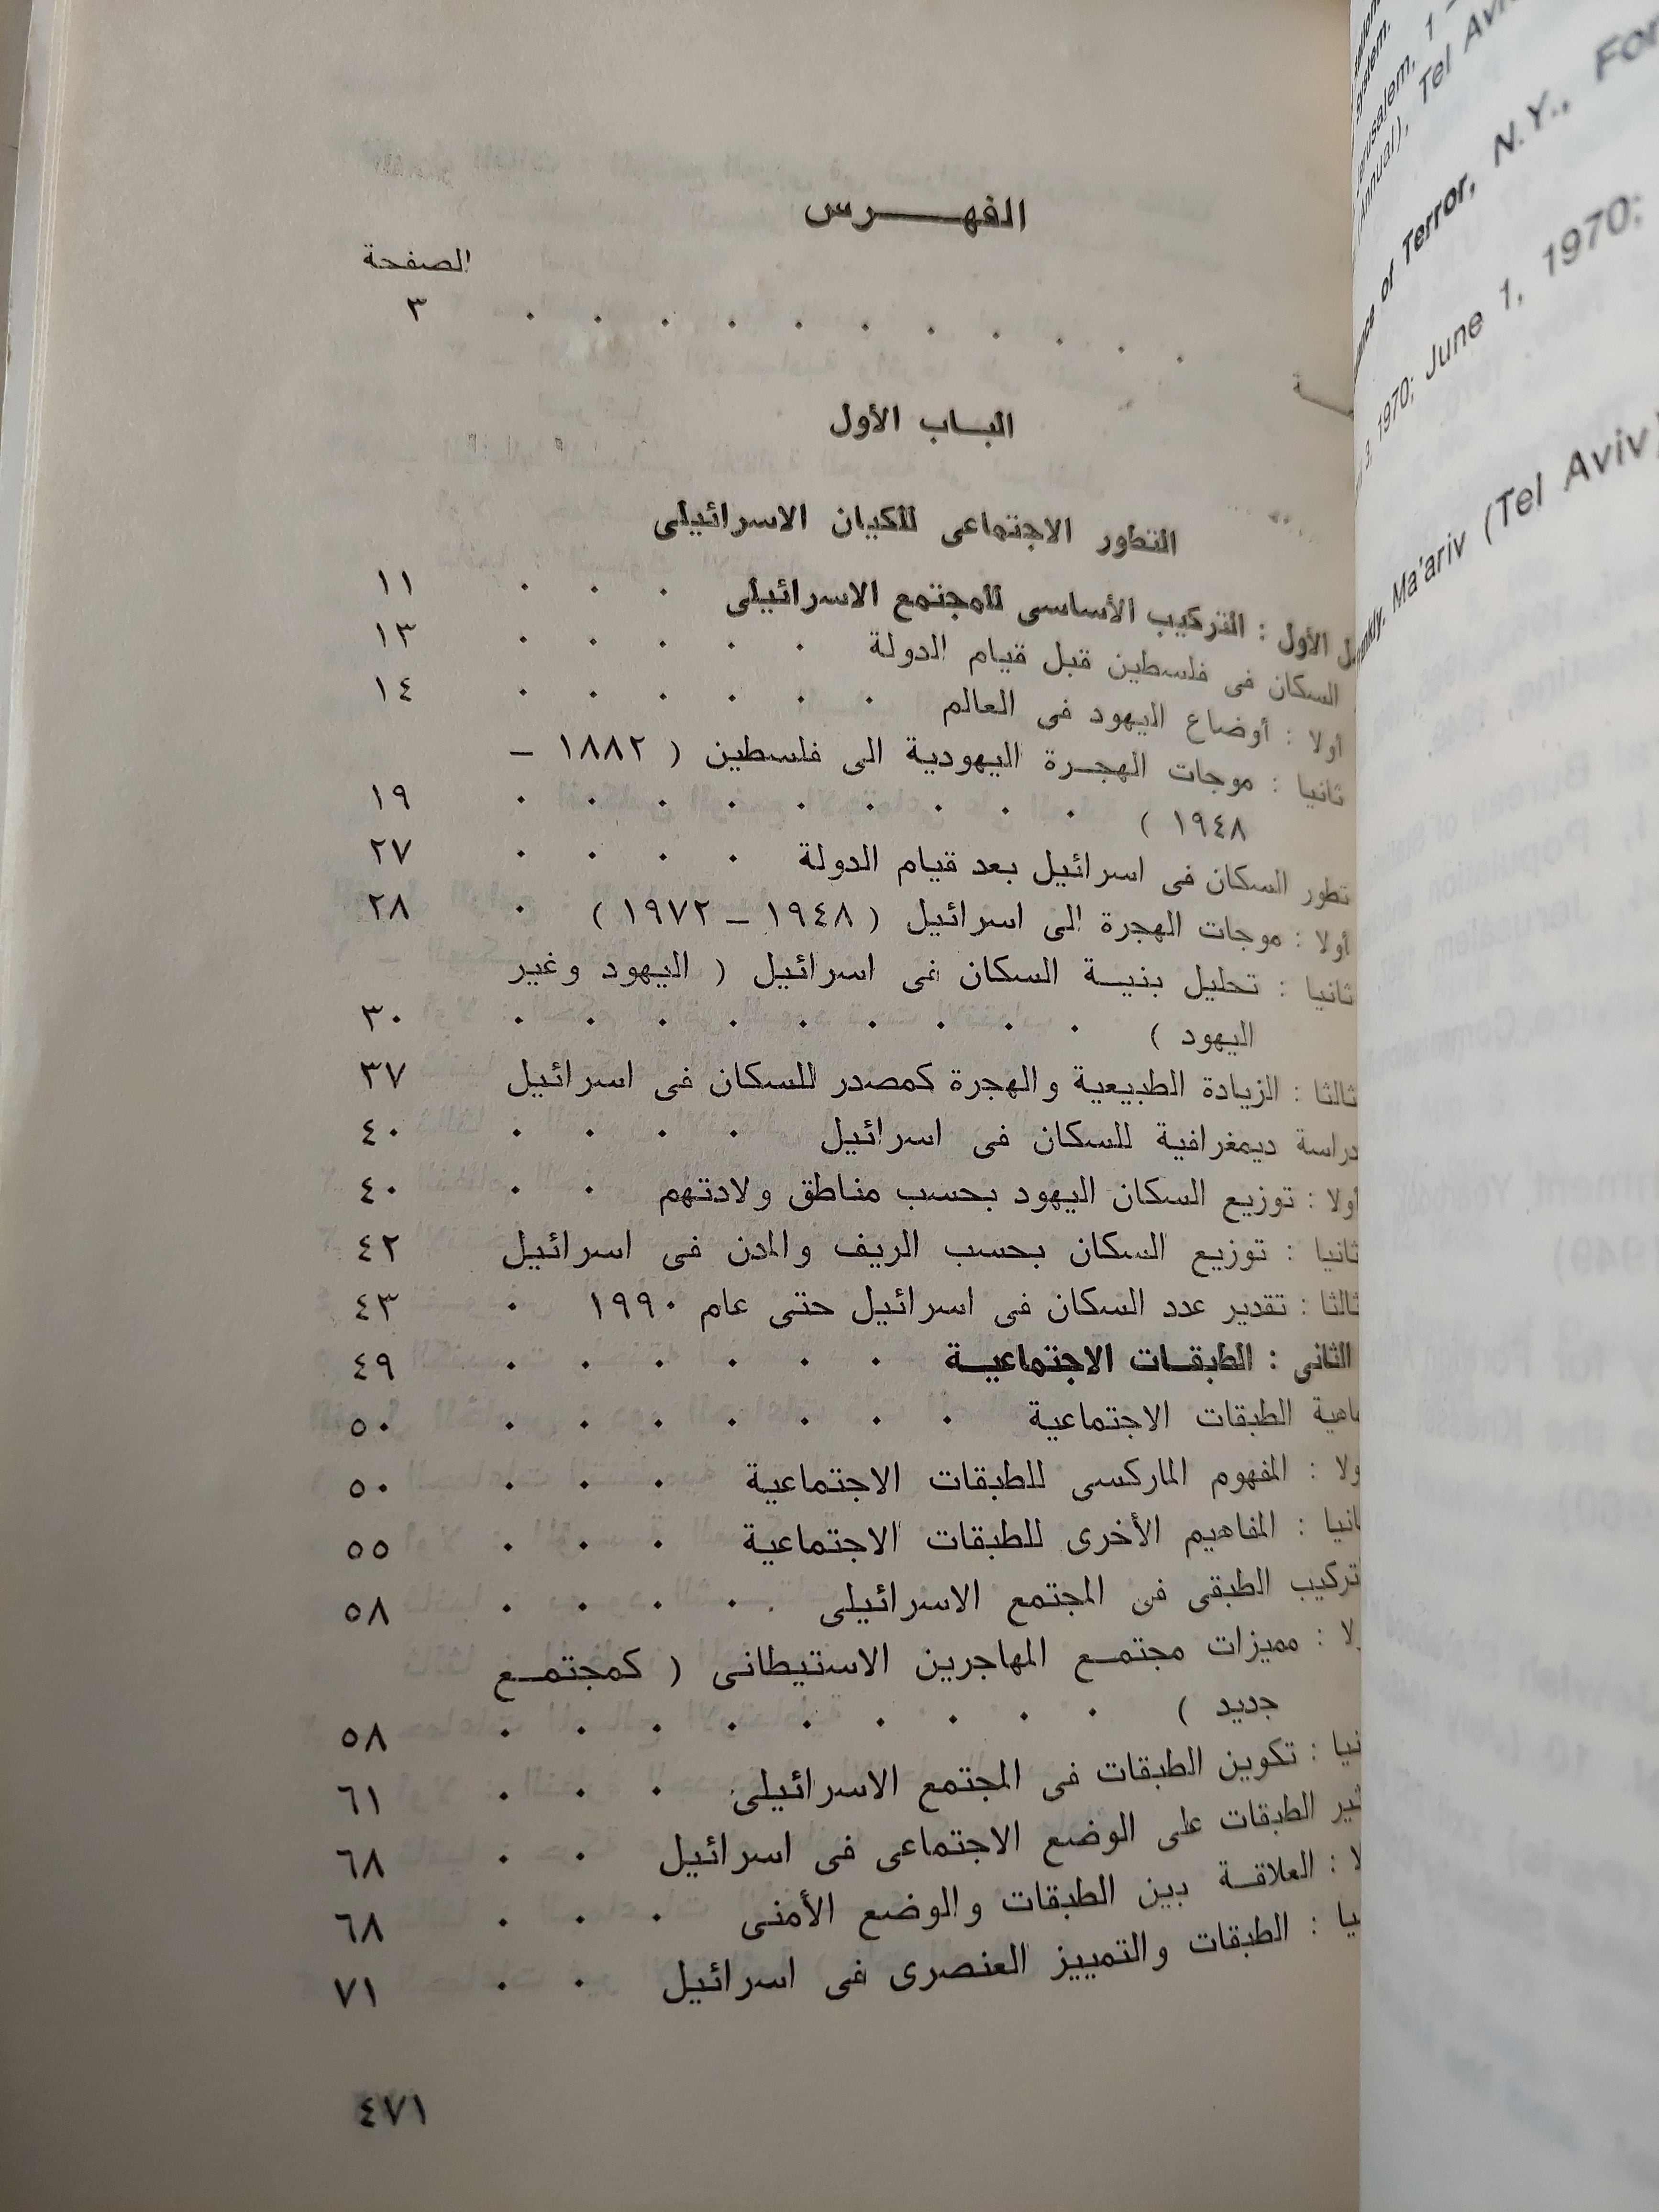 الفهـــرس
الصفحة
٣ . . . . . . . . . . .
البــاب الأول
التطور الاجتماعى للكيان الاسرائيلى
الأول : التركيب الأساسى للمجتمع الاسرائيلى . . . ١١
السكان فى فلسطين قبل قيام الدولة . . . . . ١٣
أولا : أوضاع اليهود فى العالم . . . . . . ١٤
ثانيا : موجات الهجـرة اليهودية الى فلسطين ( ١٨٨٢ –
١٩٤٨ ) . . . . . . . . . ١٩
تطور السكان فى اسرائيل بعد قيام الدولة . . . . ٢٧
أولا : موجات الهجرة الى اسرائيل ( ١٩٤٨ – ١٩٧٢ ) . ٢٨
ثانيا : تحليل بنيـة السكان فى اسرائيل ( اليهود وغير
اليهود ) . . . . . . . . . ٣٠
ثالثا : الزيادة الطبيعية والهجرة كمصدر للسكان فى اسرائيل ٣٧
دراسة ديمغرافية للسكان فى اسرائيل . . . . ٤٠
أولا : توزيع السكان اليهود بحسب مناطق ولادتهم . . ٤٠
ثانيا : توزيع السكان بحسب الريف والمدن فى اسرائيل ٤٢
ثالثا : تقدير عدد السكان فى اسرائيل حتى عام ١٩٩٠ . ٤٣
الثانى : الطبقـات الاجتماعيـة . . . . . . ٤٩
ماهية الطبقات الاجتماعية . . . . . . . ٥٠
ولا : المفهوم الماركسى للطبقات الاجتماعية . . . ٥٠
انيا : المفاهيم الأخرى للطبقات الاجتماعية . . . ٥٥
تركيب الطبقى فى المجتمع الاسرائيلى . . . . ٥٨
لا : مميزات مجتمـع المهاجرين الاستيطانى ( كمجتمـع
جديد ) . . . . . . . . . ٥٨
نيا : تكوين الطبقات فى المجتمع الاسرائيلى . . . ٦١
ثير الطبقات على الوضع الاجتماعى فى اسرائيل . . ٦٨
لا : العلاقـة بين الطبقات والوضع الأمنى . . . ٦٨
يا : الطبقات والتمييز العنصرى فى اسرائيل . . ٧١
٤٧١
system.
Jerusalem, 1 –
Annual), Tel
of Terror, N.Y.,
3, 1970; June 1, 1970;
Ma'ariv (Tel Aviv)